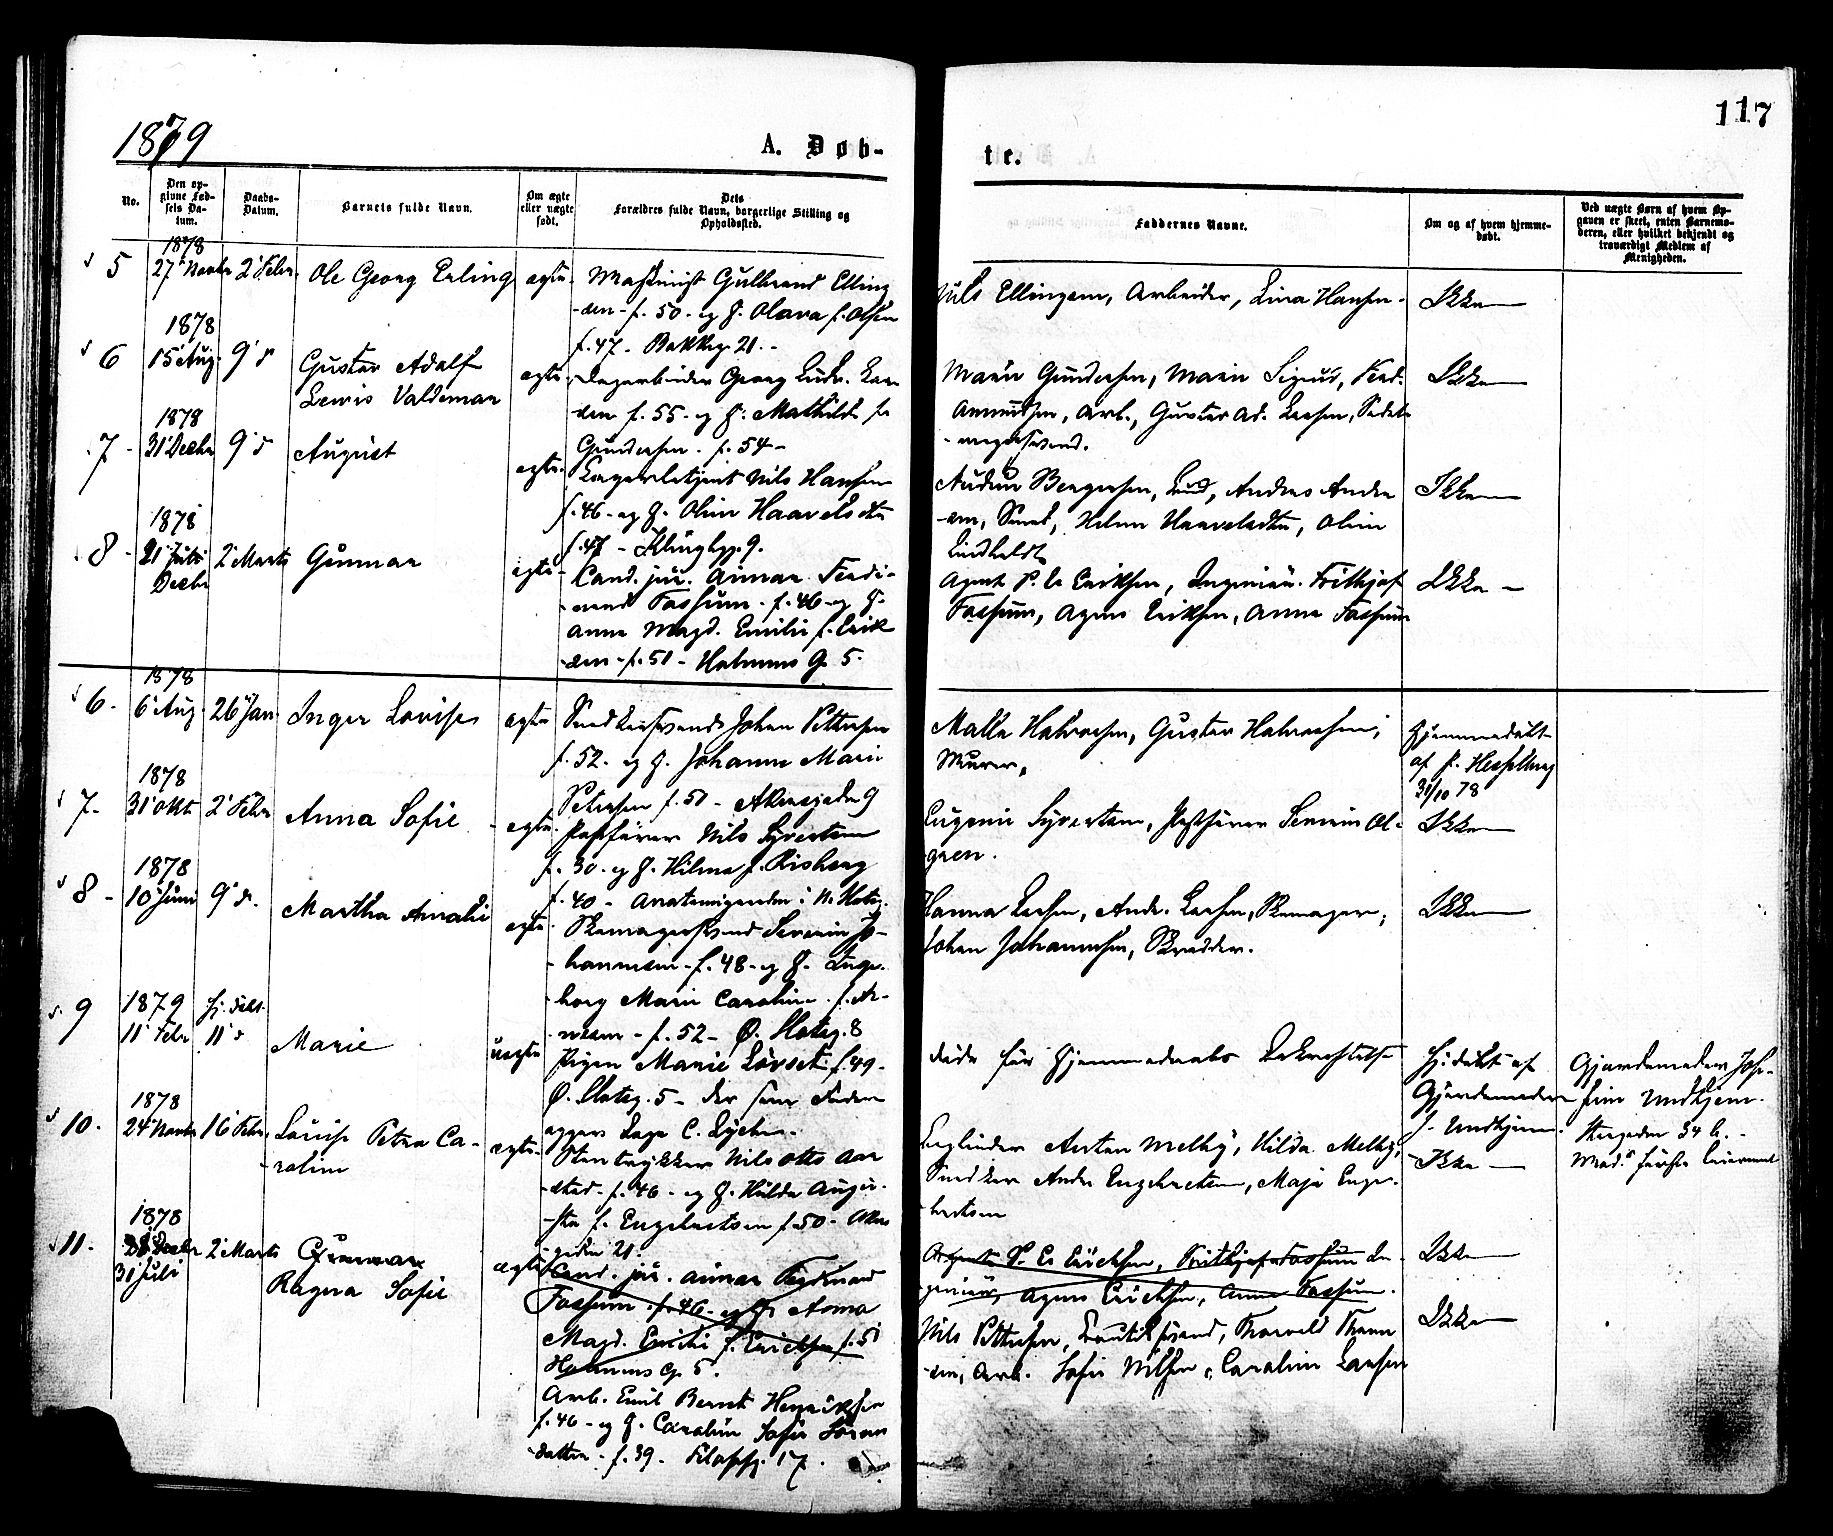 1879
A. Døb-
te.
117
No.
Den op-
givne Fød-
sels Da-
tum.
Daabs-
Datum.
Barnets fulde Navn.
Om ægte
eller uægte
født.
Dets
Forældres fulde Navn, borgerlige Stilling og
Opholdssted.
Faddernes Navne.
Om og af hvem hjemme-
døbt.
Ved uægte Børn af hvem Op-
gaven er skeet, enten Barnemo-
deren, eller hvilket bekjendt og
troværdigt Medlem af
Menigheden.
5
1878
27 Novbr
2 Febr.
Ole Georg Erling
ægte
Maskinist Gulbrand Elling
sen f. 50 og H. Olava f. Olsen
f. 47 - Bakkg. 21.
Nils Ellingsen, Arbeider, Lina Hansen
Ikke
6
1878
15 Aug.
9 d
Gustav Adolf
Lewis Valdemar
ægte
Dagarbeider Georg Ludv. Lar
sen f. 55 - og H. Mathilde f.
Gundersen f. 54 -
Marie Gundersen, Marie Sigrud, Ferd.
Amundsen, Arb., Gustav Ad. Larsen, Sadel-
magersvend.
Ikke
7
1878
31 Decbr
9 d
August
ægte
Nils Hansen
f. 46 - og H. Oline Haavelsdtr
f. 47 - Klingbgg. 9.
Audun Bergersen, Andreas Andre
sen, Smed, Helene Haavelsdtr, Oline
Lindholdt
Ikke
8
1878
21 Juli
Decbr
2 Marts
Gunnar
ægte
Cand. jur. Ainar Ferdi-
nand Fossum f. 46 og H.
Anna Magd. Emilie f. Erik
sen f. 51 - Holmens G. 5.
Agent P. Cr Eriksen, Ingeniør Frithjof
Fossum, Agnes Eriksen, Anna Fossum
Ikke
6.
1878
6 Aug.
26 Jan.
Inger Lovise
ægte
Snedkersvend Johan Pettersen
f. 52. og H. Johanne Marie
Petersen f. 51 - Akersgaden 9
Malla Halvorsen, Gustav Halvorsen,
Murer,
Hjemmedøbt
af P. Hesselberg
31/10 78
7.
1878
31 Okt
2 Febr
Anna Sofie
ægte
Postfører Nils Syvertsen
f. 30. og H. Hilma f. Risberg
f. 40 -
Eugenie Syvertsen, Postfører Severin Ol-
gren.
Ikke
8
1878
10 Juni
9 d.
Martha Amalie
ægte
Skomagersvend Severin Jo-
hannesen - f. 48 - og H. Inge-
borg Marie Caroline f. Ar-
nesen - f. 52 - Ø. Slotsg. 8
Hanna Larsen, Andr. Larsen, Skomager,
Johan Johannesen, Skredder.
Ikke
9
1879
11 Febr
hj. døbt
11 d
Marie
uægte
Pigen Marie Lövset f. 49 -
Ø. Slotsg. 5 - der som Fader
opgav Lars C.
døde før Hjemmedaabs Bekræftelse
hj. døbt af
Gjordemoder
J. Undhjem.
Gjordemoder Jose-
fine Undhjem.
Storgaden 34 b.
10.
1878
24 Novbr
16 Febr.
Louise Petra Ca-
roline
ægte
Stentrykker Nils Otto Aar
stad - f. 46 - og H. Hilda Augu-
sta f. Engebretsen f. 50 - Akers
gaden 21.
Anton Melby, Hilda Melby,
Snedker Andr. Engebretsen, Maja Enge-
bretsen
Ikke
11.
1878
Decbr
31 Juli
2 Marts
Gunnar
Ragna Sofie
ægte
Cand. jur. Ainar Ferdinand
Fossum f. 46 - og H. Anna
Magd. Emilie f. Erichsen f. 51
Holmens G. 5.
Arb. Emil Bernt Henriksen
f. 46 - og H. Caroline Sofie Søren
datter - f. 39. Filosfg. 17.
Agent P. Cr Erichsen, Frithjof Fossum In-
geniør, Agnes Erichsen, Anna Fossum.
Nils Pettersen, Thorvald
Arb. Sofie Nilsen, Caroline Larsen
Ikke
Ikke